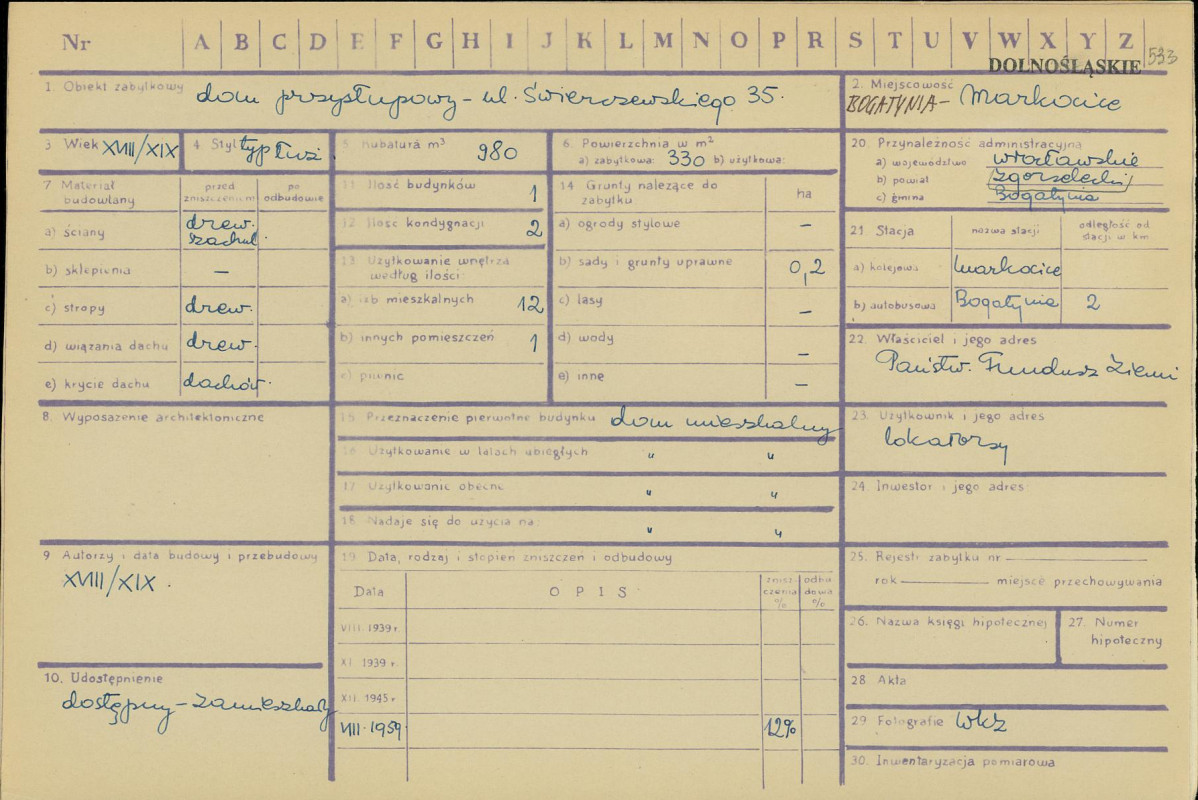 Nr A B C D E F G H I J K L M N O P R S T U V W X Y Z
DOLNOŚLĄSKIE 533
1. Obiekt zabytkowy dom przysłupowy – ul. Świerczewskiego 35.
2. Miejscowość
BOGATYNIA – Markocice
3 Wiek XVIII/XIX
4 Styl typ łuż.
5 Kubatura m³ 980
6. Powierzchnia w m²
a) zabytkowa: 330 b) użytkowa:
7 Materiał budowlany
przed zniszczeniem
po odbudowie
a) ściany drew. szachul.
b) sklepienia –
c) stropy drew.
d) wiązania dachu drew.
e) krycie dachu dachów.
8. Wyposażenie architektoniczne
9 Autorzy i data budowy i przebudowy
XVIII/XIX.
10. Udostępnienie
dostępny – zamieszkały
11 Ilość budynków 1
12 Ilość kondygnacji 2
13 Użytkowanie wnętrza według ilości:
a) izb mieszkalnych 12
b) innych pomieszczeń 1
c) piwnic
14 Grunty należące do zabytku
ha
a) ogrody stylowe –
b) sady i grunty uprawne 0,2
c) lasy –
d) wody –
e) inne –
15 Przeznaczenie pierwotne budynku dom mieszkalny
16 Użytkowanie w latach ubiegłych " "
17 Użytkowanie obecne " "
18 Nadaje się do użycia na: " "
19 Data, rodzaj i stopień zniszczeń i odbudowy
Data
OPIS
znisz-czenia %
odbu dowa %
VIII 1939 r.
XI 1939 r.
XII 1945 r.
VIII 1959 12%
20. Przynależność administracyjna
a) województwo wrocławskie
b) powiat zgorzelecki
c) gmina Bogatynia
21 Stacja
nazwa stacji
odległość od stacji w km
a) kolejowa Markocice
b) autobusowa Bogatynia 2
22. Właściciel i jego adres
Państw. Fundusz Ziemi
23. Użytkownik i jego adres
lokatorzy
24. Inwestor i jego adres
25. Rejestr zabytku nr
rok miejsce przechowywania
26. Nazwa księgi hipotecznej
27. Numer hipoteczny
28 Akta
29 Fotografie WKZ
30. Inwentaryzacja pomiarowa